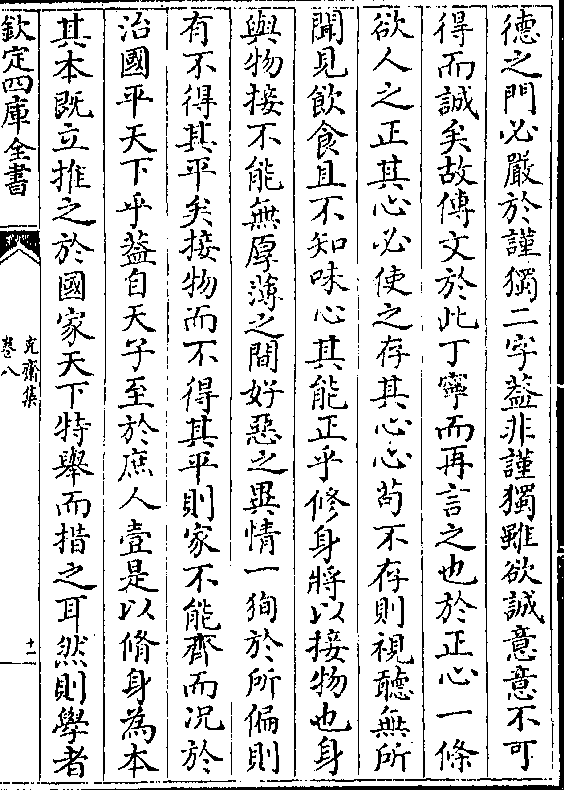 德之門必嚴於謹獨二字葢非謹獨雖欲誠意意不可
得而誠矣故傳文於此丁寧而再言之也於正心一條
欲人之正其心必使之存其心心苟不存則視聽無所
聞見飲食且不知味心其能正乎修身將以接物也身
與物接不能無厚薄之間好惡之異情一狥於所偏則
有不得其平矣接物而不得其平則家不能齊而况於
治國平天下乎葢自天子至於庶人壹是以脩身為本
其本既立推之於國家天下特舉而措之耳然則學者
欽定四庫全書
克齋集
卷八
十二